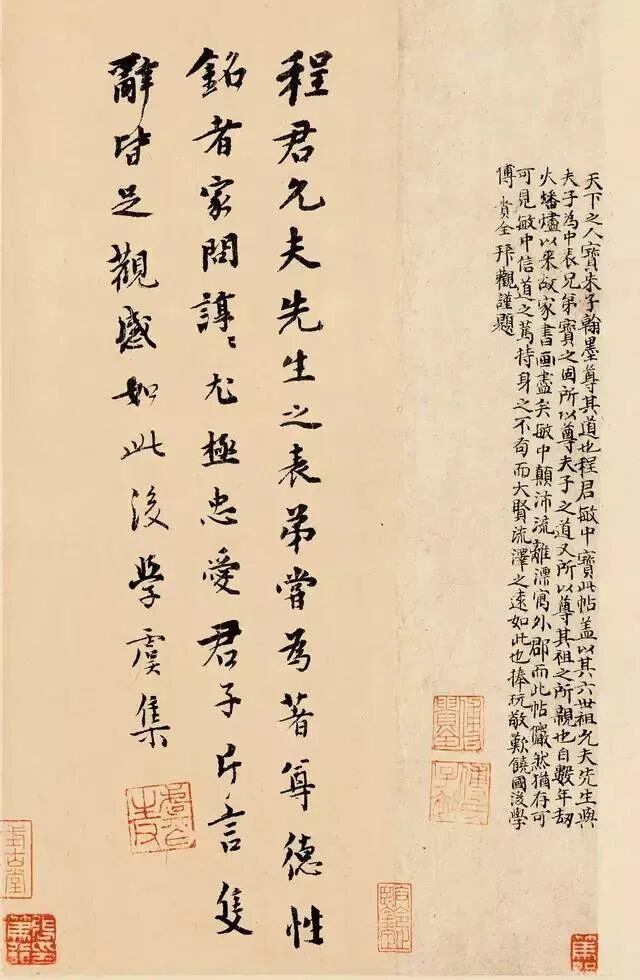 天下之人寶朱子翰墨尊其道也程君敏中寶此帖盖以其六世祖允夫先生與
夫子為中表兄弟寶之固所以尊夫子之道又所以尊其祖之所親也自數年刼
火蟠燼以来故家書画盡矣敏中顛沛流離漂寓外郡而此帖儼然猶存可
可見敏中信道之篤持身之不苟而大賢流澤之遠如此也捧玩敬歎饒國後學
傅貴全拜觀謹題
程君允夫先生之表弟嘗為著尊德性
銘者家問諄〻尤極忠愛君子片言隻
辭皆足觀感如此後學虞集